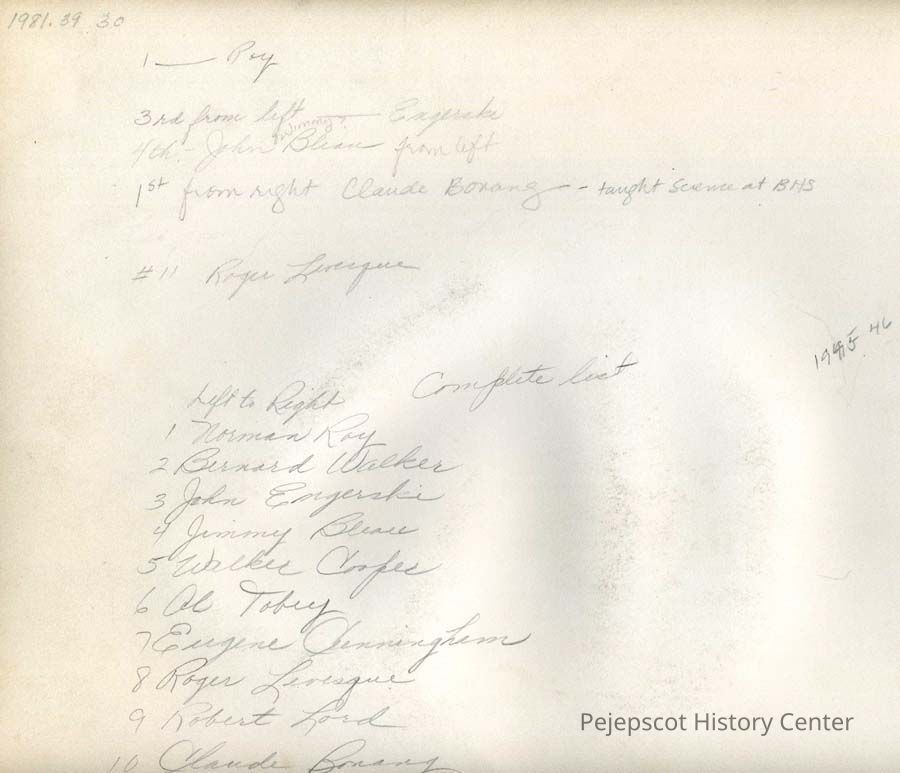 1981.39 30
1 — Roy
3rd from left — Engerski
Jimmy
4th - John Bleau from left
1st from right Claude Bonang - taught science at BHS
#11 Roger Levesque
1945 46
Complete list
Left to Right
1 Norman Roy
2 Bernard Walker
3 John Engerski
4 Jimmy Bleau
5 Walker Cooper
6 Al Tobey
7 Eugene Cunningham
8 Roger Levesque
9 Robert Lord
10 Claude Bonang
Pejepscot History Center